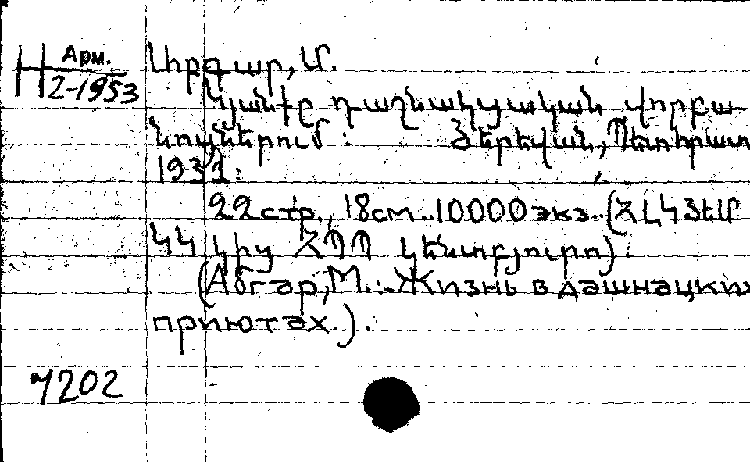 Арм.
Н 2-1953
Աբգար, Մ.
Կյանքը դաշնակցական վորբա-
նոցներում: Յերեվան, Պետհրատ
1931:
22 стр., 18 см.. 10000 экз. (ՀԼԿՅԵՄ
ԿԿ կից ՀՊՊ կենտբյուրո)
(Абгар, М.:. Жизнь в дашнацких
приютах.).
7202